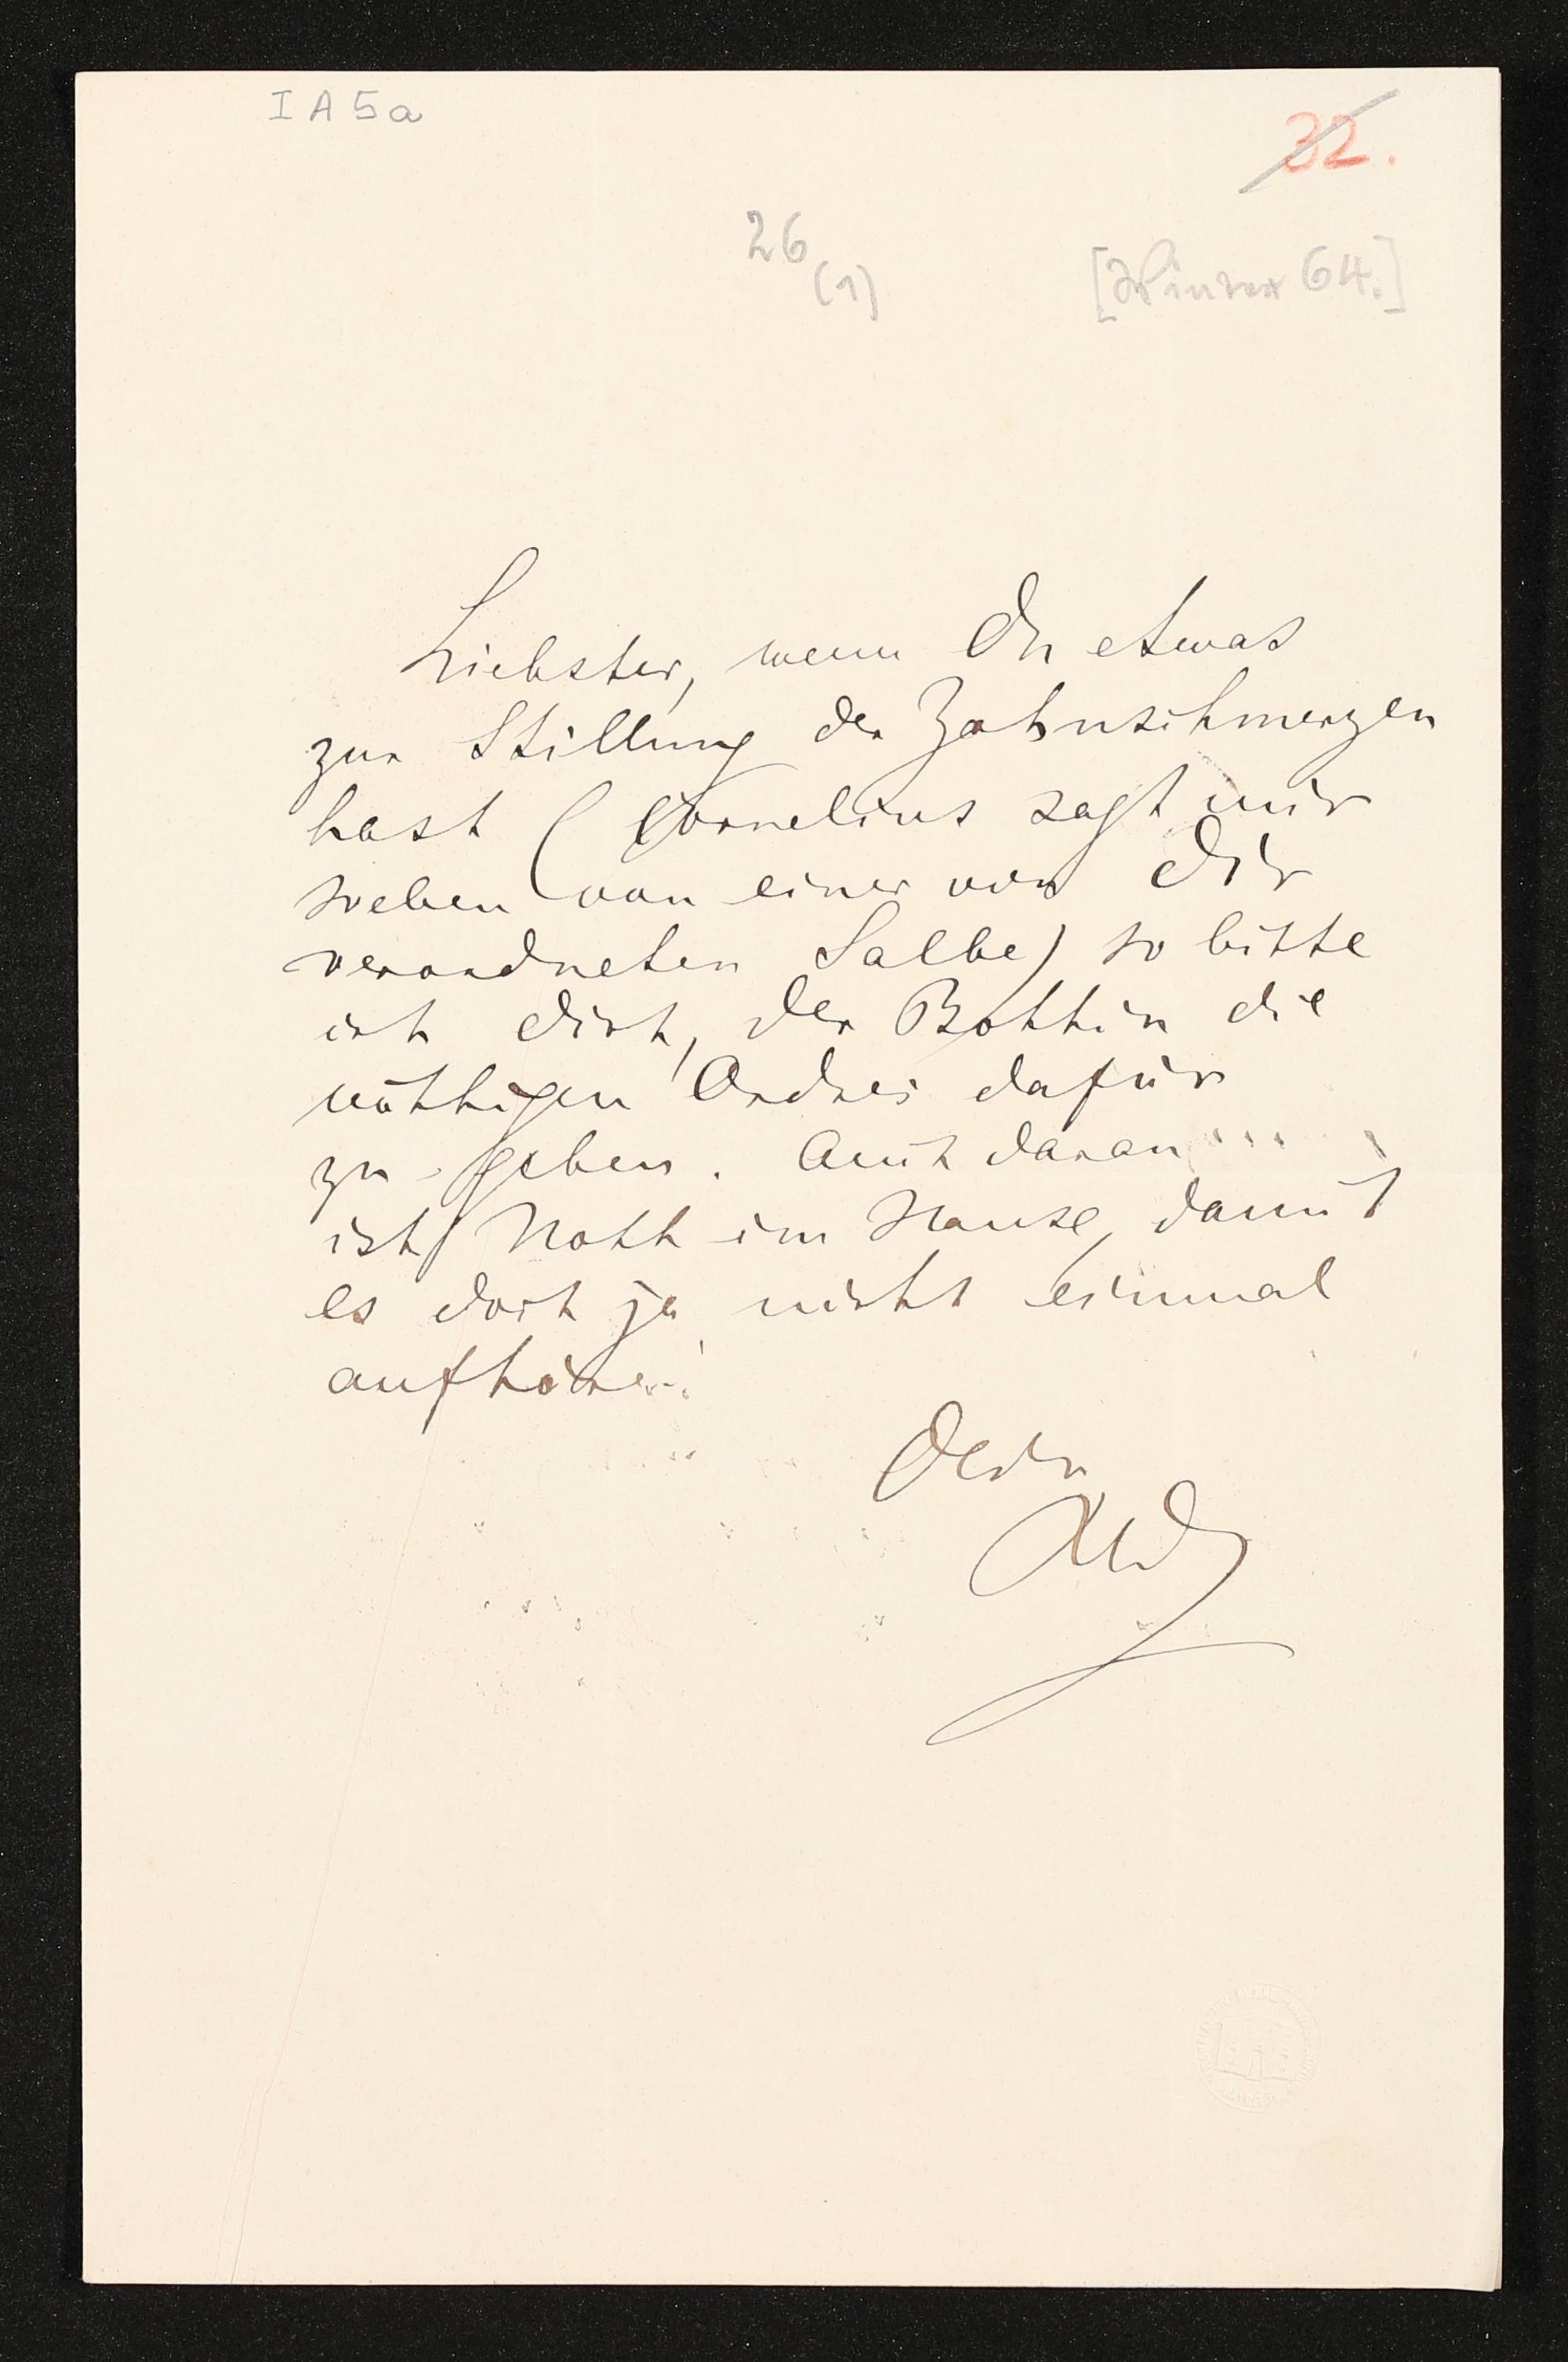 I A 5 a
32.
26
(1)
[Winter 64.]
Liebster, wenn Du etwas
zur Stillung der Zahnschmerzen
hast (Cornelius sagt mir
soeben von einer von Dir
verordneten Salbe) so bitte
ich dich, der Bothin die
nöthigen Ordres dafür
zu geben. Auch daran
ist Noth im Hause, damit
es dort ja nicht einmal
aufhöre!
Dein